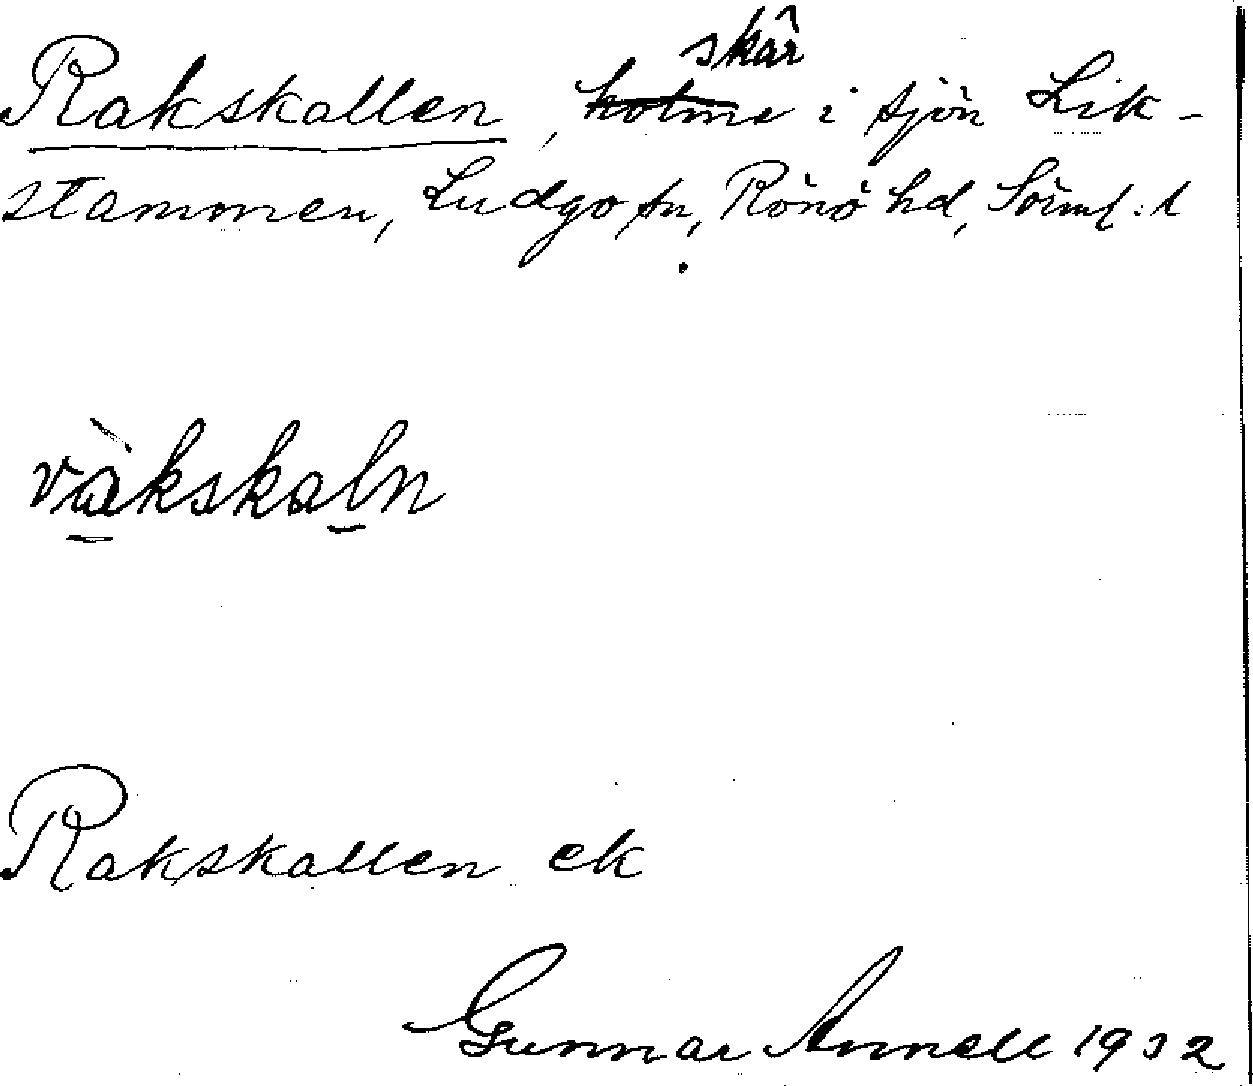 skär
Rakskallen, holme i sjön Lik-
stammen, Ludgo sn, Rönö hd, Sörml:l
vàkskaln
Rakskallen ek
Gunnar Annell 1932